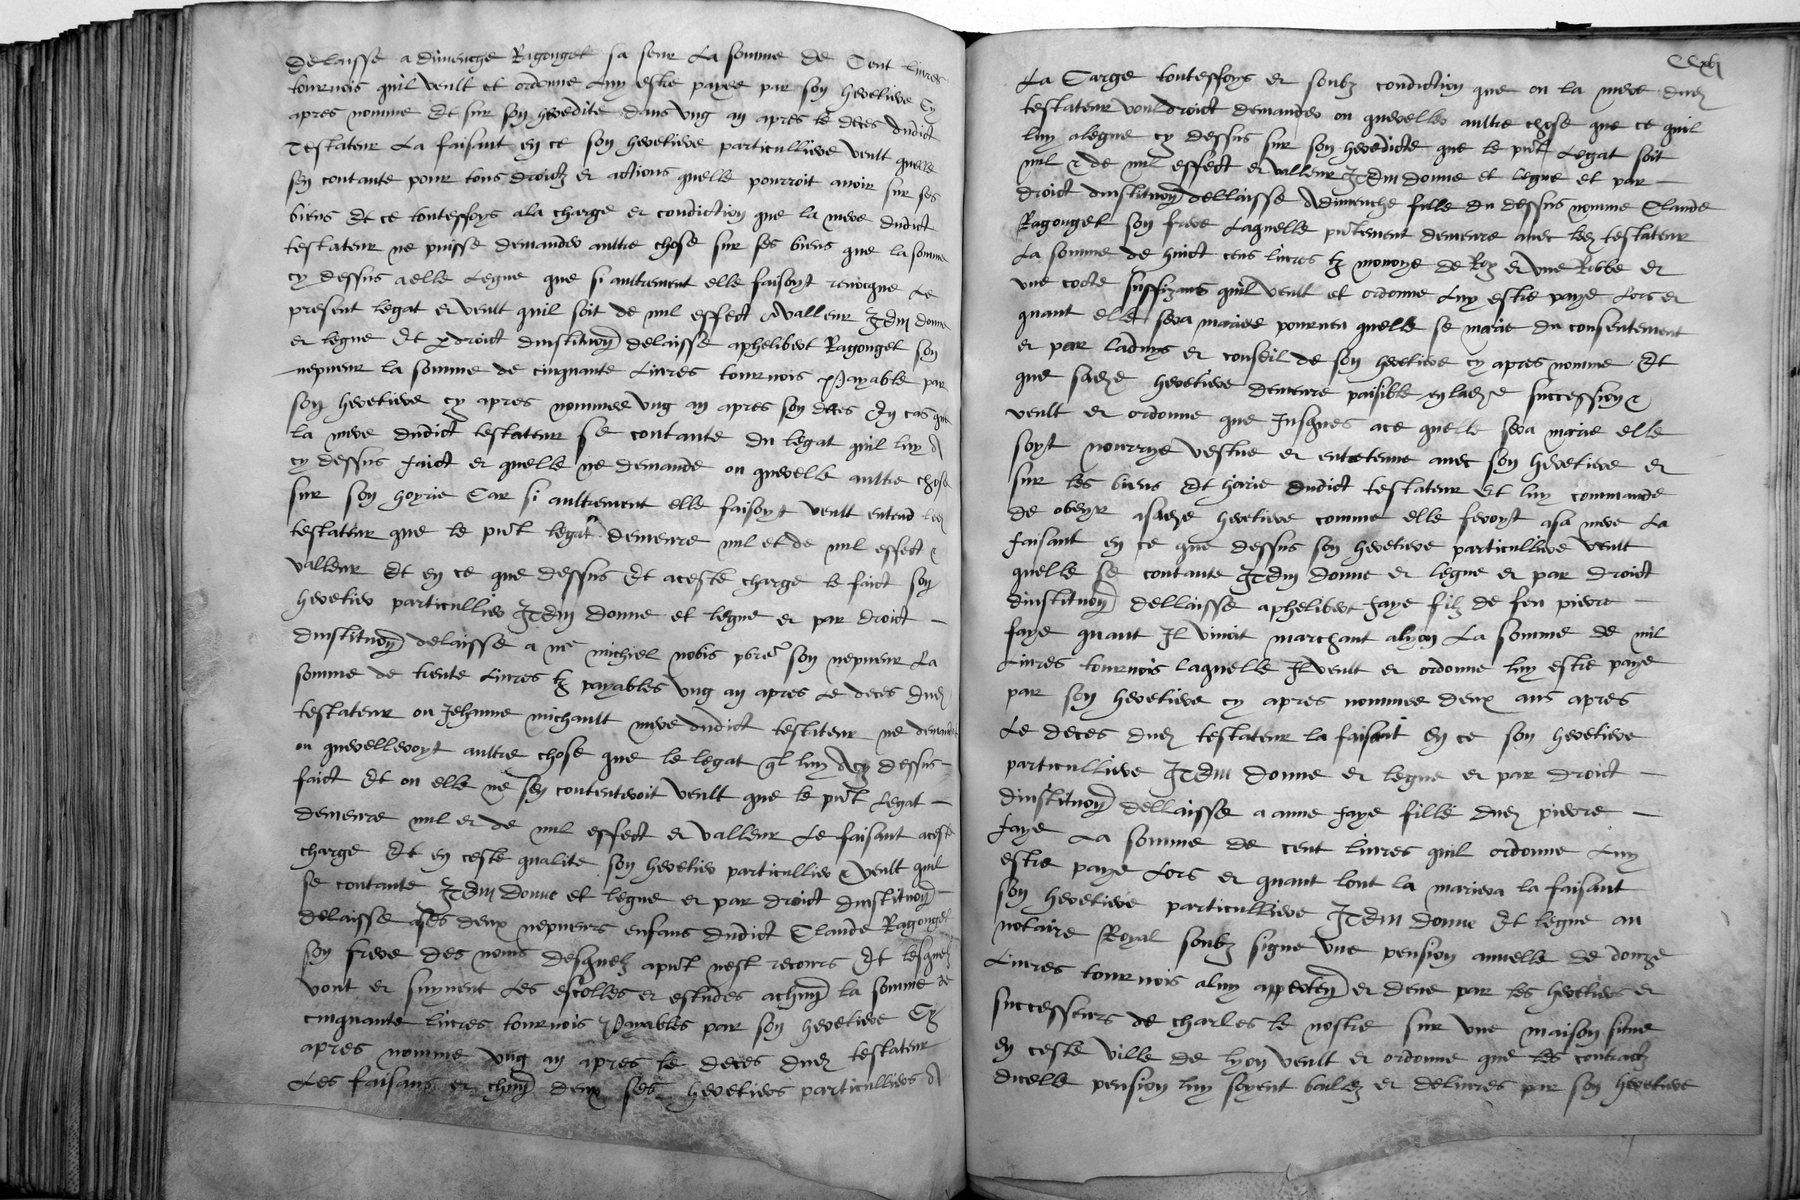 delaisse a dimenche Ragouget sa seur La somme de Cent livres
tournois quil veult et ordonne Luy estre payee par son heretiere Cy
apres nomme Et sur son heredite dans ung an apres le deces dudict
Testateur La faisant en ce son heretiere particulliere veult quelle
sen contante pour tous droictz et actions quelle pourroit avoir sur ses
biens Et ce toutesfoys ala charge et condiction que la mere dudict
testateur ne puisse demander aultre chose sur ses biens que la somme
cy dessus aelle Legue que si aultrement elle faisoyt revocque Le
present legat et veult quil soit de nul effect & valleur Item donne
et legue Et p droict dinstitution delaisse aphelibert Ragouget son
nepueur la somme de cinquante Livres tournois Payable par
son heretiere cy apres nommee ung an apres son deces En cas que
la mere dudict testateur se contante du legat quil luy A
cy dessus faict et quelle ne demande ou querelle aultre chose
sur son hoyrie Car si aultrement elle faisoyt veult entend led
testateur que le pnt legat demeure nul et de nul effect &
valleur Et en ce que dessus Et aceste charge le faict son
heretier particullier Item donne et legue et par droict
dinstitution delaisse a me michiel nobis pbre son nepueur La
somme de trente Livres tz payables ung an apres Le deces dud
testateur ou Jehanne michault mere dudict testateur ne demande
ou querelleroyt aultre chose que le legat ql luy A cy dessus
faict Et ou elle ne sen contenteroit veult que le pnt Legat
demeure nul et de nul effect et valleur Le faisant aceste
charge Et en ceste qualite son heretier particullier & veult quil
se contante Item donne et legue et par droict dinstitution
delaisse ases deux nepueurs enfans dudict Claude Ragouget
son frere des noms desquelz apnt nest recours Et lesquelz
vont et suyvent Les escolles et estudes achun la somme de
cinquante livres tournois Payables par son heretiere Cy
apres nomme ung an apres le deces dud testateur
Les faisans et chun deux ses heretiers particulliers A
CCxvj
La Carge toutesfoys et soubz condiction que ou la mere dud
testateur vouldroict demander ou quereller aultre chose que ce quil
luy alegue cy dessus sur son heredicte que le pnt Legat soit
nul & de nul effect et valleur Item donne et legue et par
droict dinstitution dellaisse A dimenche fille du dessus nomme Claude
Ragouget son frere Laquelle pntement demeure avec led testateur
La somme de huict cens livres tz monoye de Roy et une Robbe et
une cotte suffizans quil veult et ordonne Luy estre paye Lors et
quant elle sera mariee pourveu quelle se marie du consentement
et par Ladvys et conseil de son heretiere cy apres nomme Et
que sadite heretiere demeure paisible en ladite succession &
veult et ordonne que Jusques ace quelle sera marie elle
soyt nourrye vestue et entetenue avec son heretiere et
sur les biens Et horie dudict testateur Et luy commande
de obeyr asadite heretiere comme elle feroyt asa mere La
faisant en ce que dessus son heretiere particulliere veult
quelle se contante Item donne et legue et par droict
dinstitution dellaisse aphelibert faye filz de feu pierre
faye quant Il vivoit marchant alyon La somme de mil
Livres tournois laquelle Il veult et ordonne luy estre paye
par son heretiere cy apres nommee deux ans apres
Le deces dud testateur la faisant En ce son heretiere
particulliere Item donne et legue et par droict
dinstitution dellaisse a anne faye fille dud pierre
faye La somme de cent livres quil ordonne Luy
estre paye Lors et quant lont la mariera la faisant
son heretiere particulliere Item donne Et legue au
notaire Royal soubz signe une pension annuelle de douze
Livres tournois aluy apperten et deue par les heretiers et
successeurs de charles le nostre sur une maison sitne
en ceste ville de lyon veult et ordonne que les contractz
dicelle pension luy soyent baillez et delivres par son heretiere